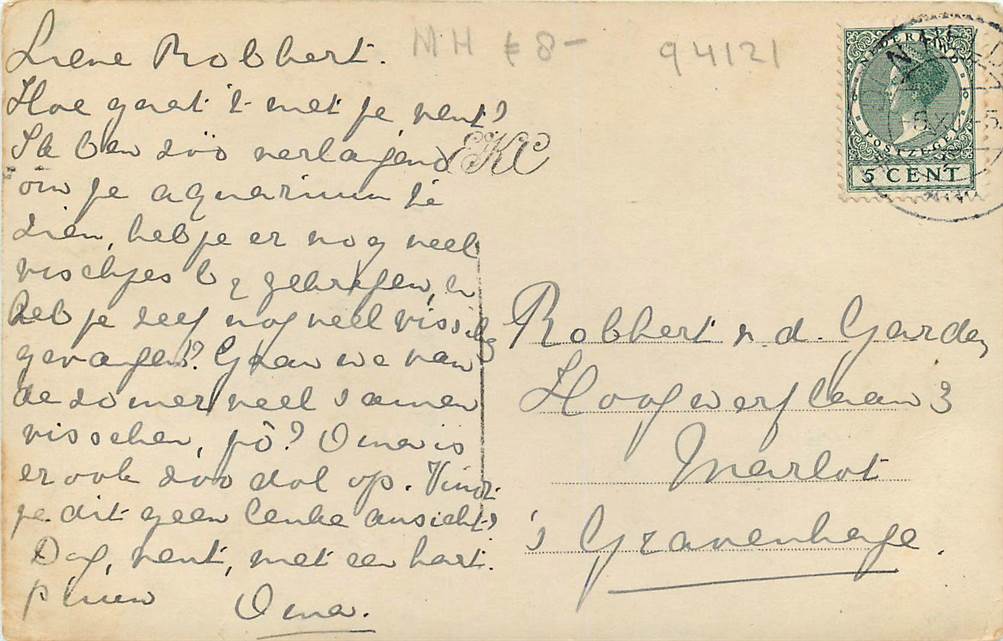 Lieve Robbert.
Hoe gaat 't met je vent?
Ik ben zóó verlangend
om je aquarium te
zien, heb je er nog veel
vischjes bij gekregen, en
heb je zelf nog veel vissies
gevangen? Gaan we van
de zomer veel samen
visschen, hô? Oma is
er ook zoo dol op. Vindt
je dit geen leuke ansicht?
Dag, vent, met een hart.
Oma.
MH € 8-
94121
EKC
NEDERLAND
POSTZEGEL
5 CENT
Robbert v. d. Garde,
Hoogwerflaan 3
Marlot
's Gravenhage.